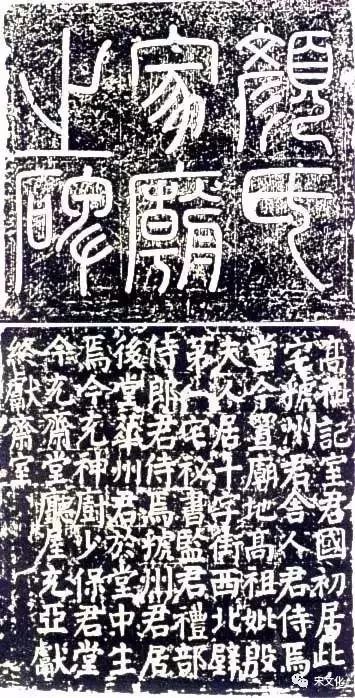 顏氏
家廟
之碑
高祖記室君國初居此
宅虢州君舍人君侍焉
堂今置廟地高祖妣殷
夫人居十字街西北壁
第一宅祕書監君禮部
侍郎君侍焉虢州君居
後堂華州君於堂中生
焉今充神廚少保君堂
今充齋堂廳屋充亞獻
終獻齋室
宋文化